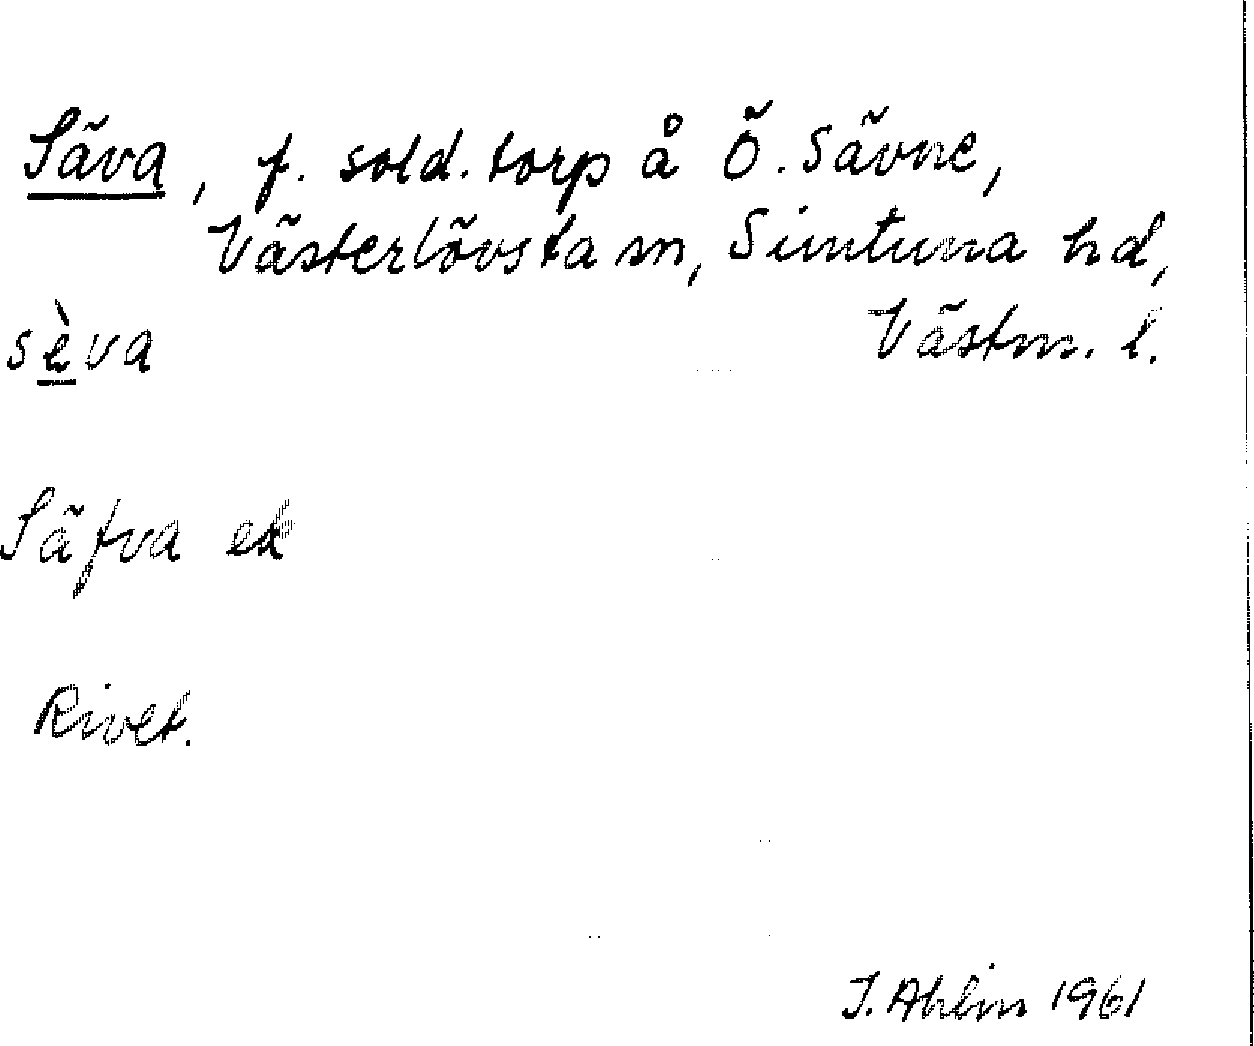 Säva, f. sold.torp å Ö. Sävne,
Västerlövsta sn, Simtuna hd,
sèva Västm. l.
Säfva ek
Rivet.
J. Ahlin 1961